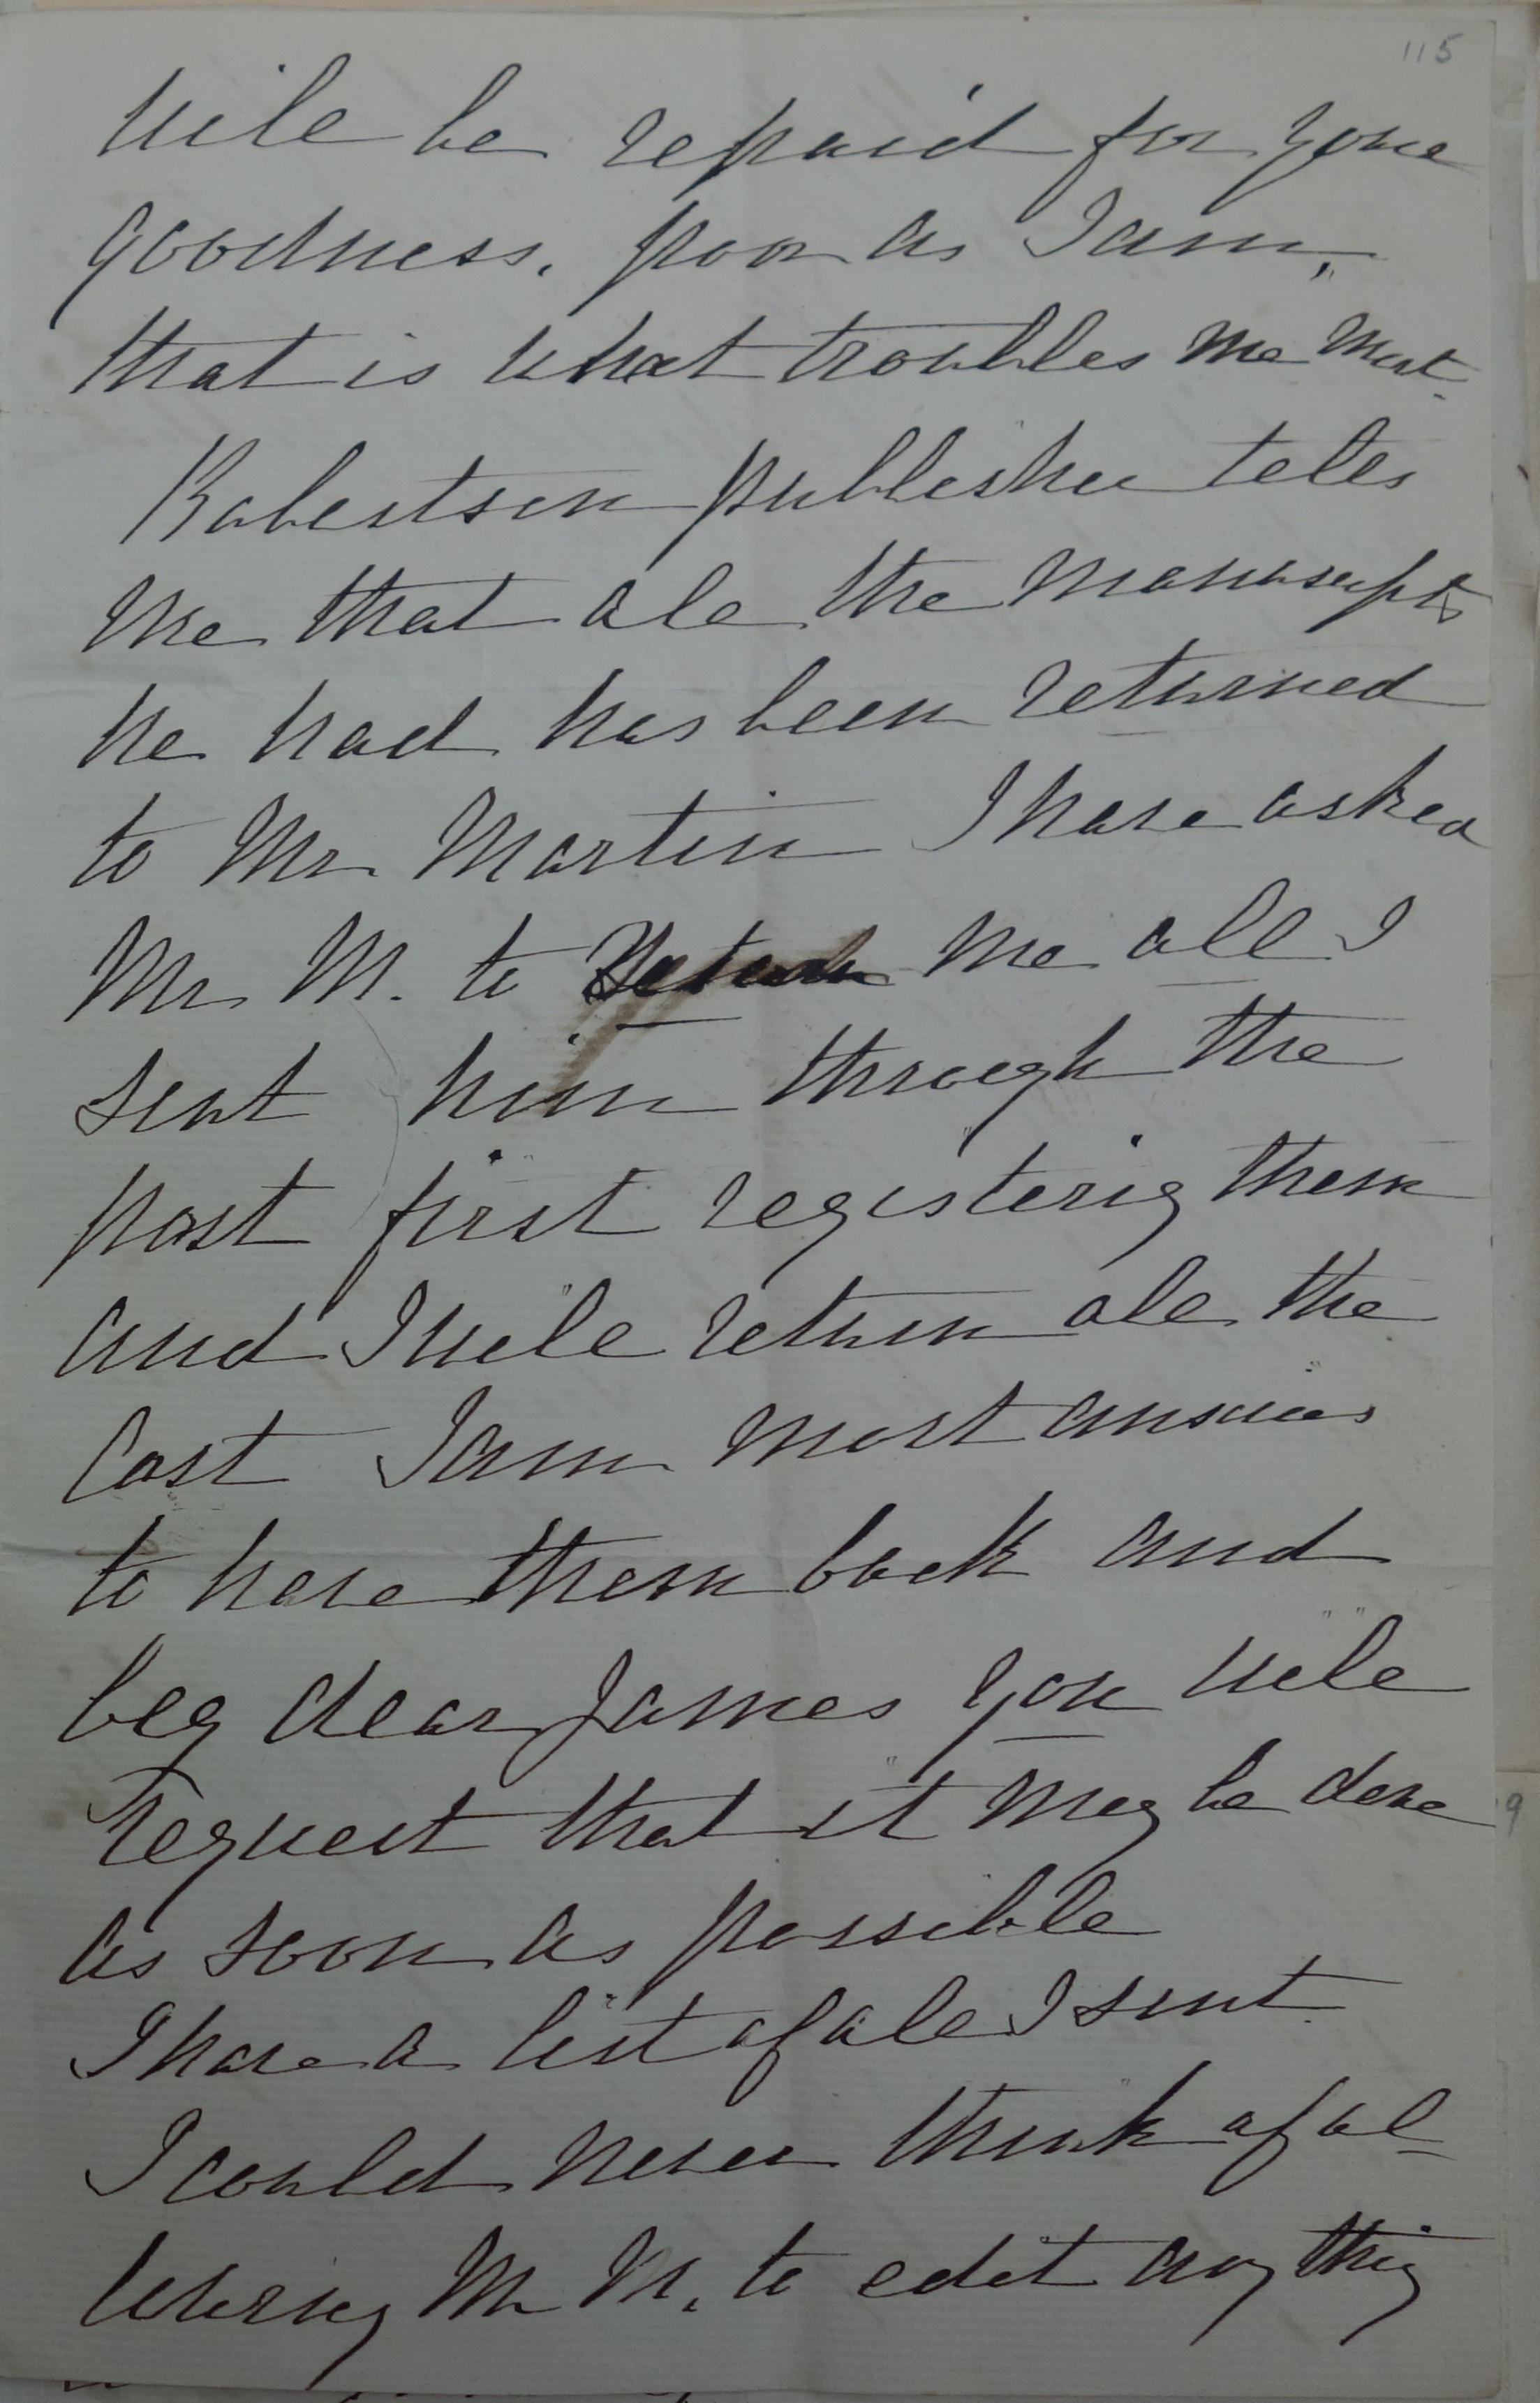 115
will be repaid for your
goodness. poor as I am,
that is what troubles me most.
Robertson publisher tells
me that all the manuscripts
he had has been returned
to Mr Martin I have asked
Mr M. to return me all I
sent him through the
post first registerig them
and I will return all the
cost I am most anxious
to have them back and
beg dear James you will
request that it may be done
as soon as possible
I have a list of all I sent
I could never think of al-
lowing Mr M. to edit any thig